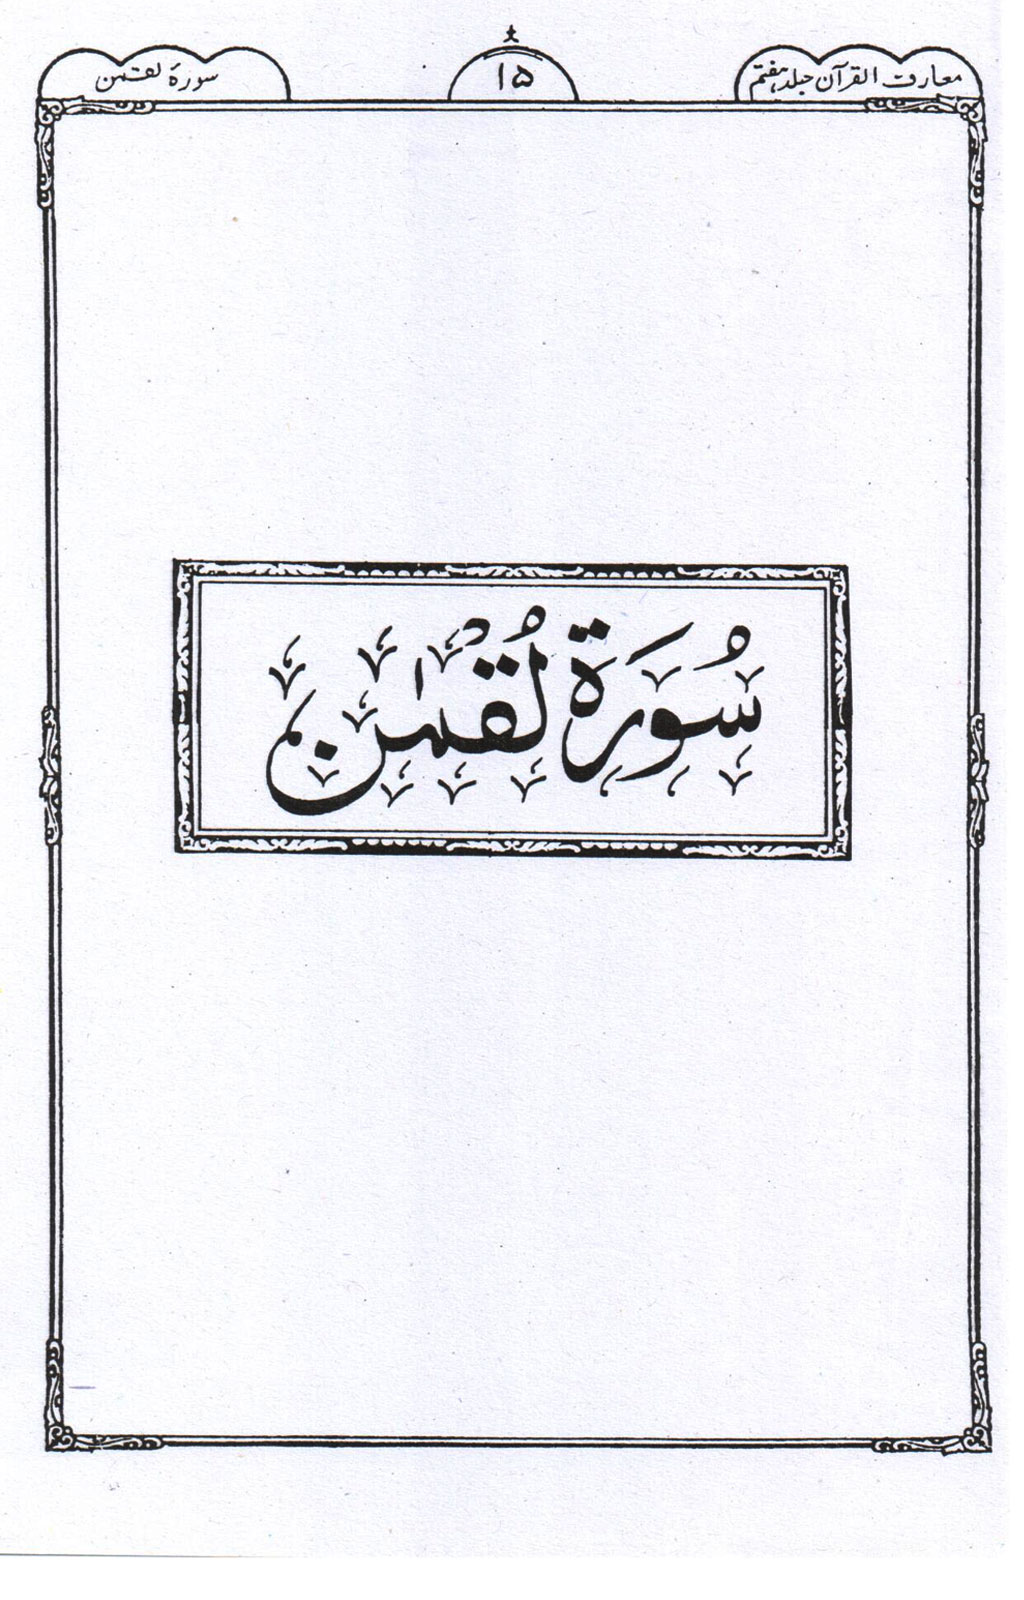 معارف القرآن جلد ہفتم
۱۵
سورۂ لقمٰن
سُوْرَةُ لُقْمٰن